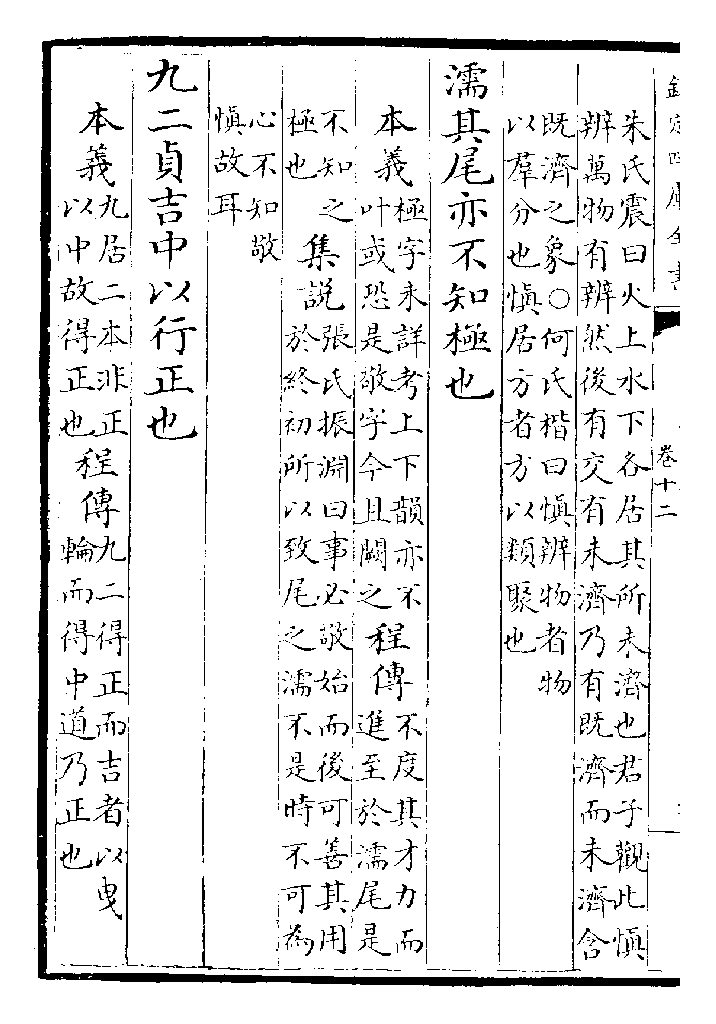 欽定四庫全書
卷十二
朱氏震曰火上水下各居其所未濟也君子觀此慎
辨萬物有辨然後有交有未濟乃有既濟而未濟含
既濟之象○何氏楷曰慎辨物者物
以羣分也慎居方者方以類聚也
濡其尾亦不知極也
本義
極字未詳考上下韻亦不
叶或恐是敬字今且闕之
程傳
不度其才力而
進至於濡尾是
不知之
極也
集說
張氏振淵曰事必敬始而後可善其用
於終初所以致尾之濡不是時不可為
心不知敬
慎故耳
九二貞吉中以行正也
本義
九居二本非正
以中故得正也
程傳
九二得正而吉者以曳
輪而得中道乃正也